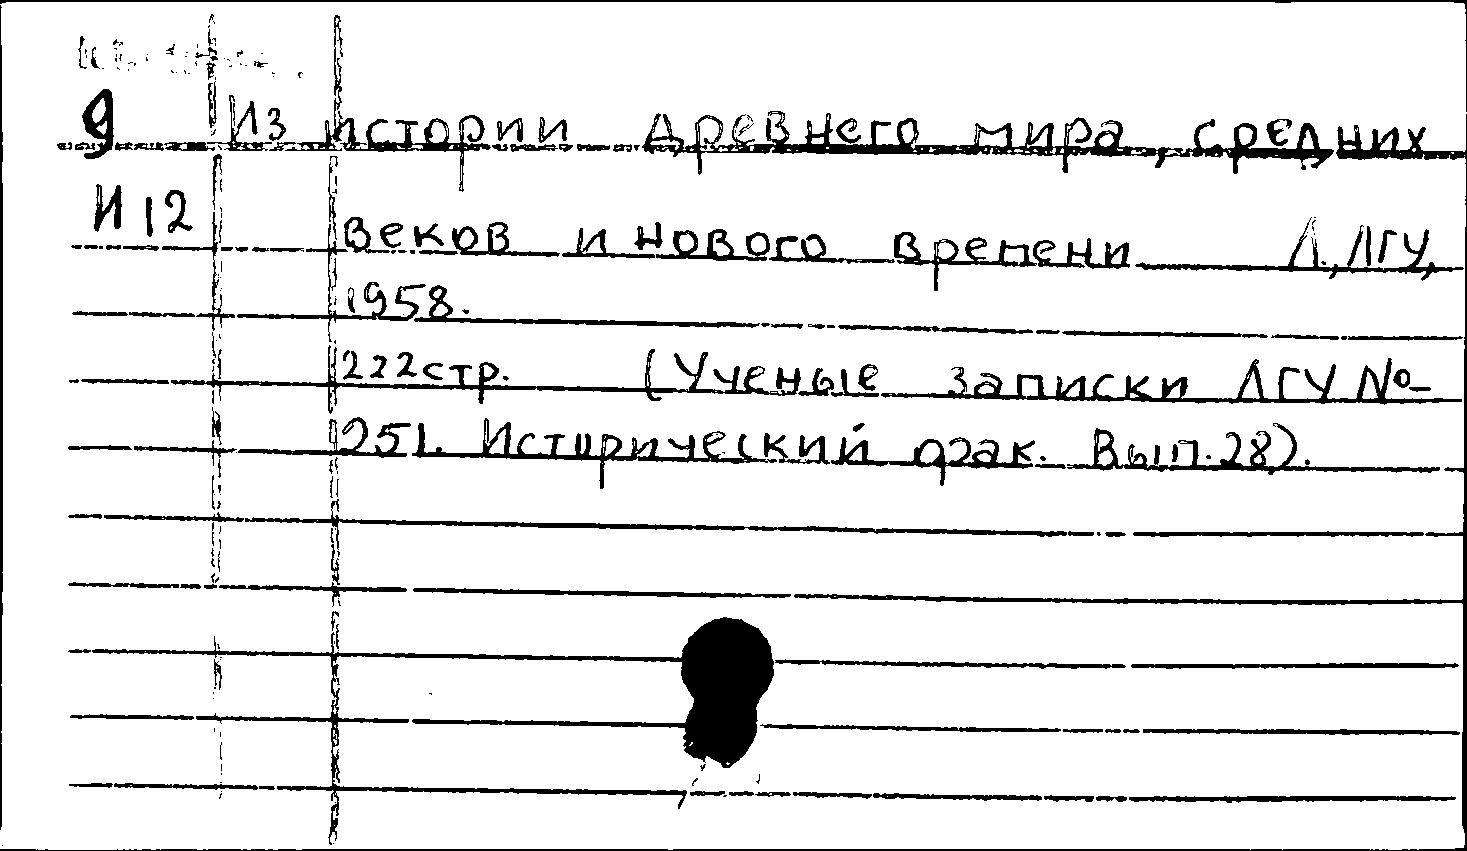 9 Из истории древнего мира, средних
И 12 веков и нового времени Л., ЛГУ,
1958.
222стр. (Ученые записки ЛГУ №
251. Исторический фак. Вып. 28).